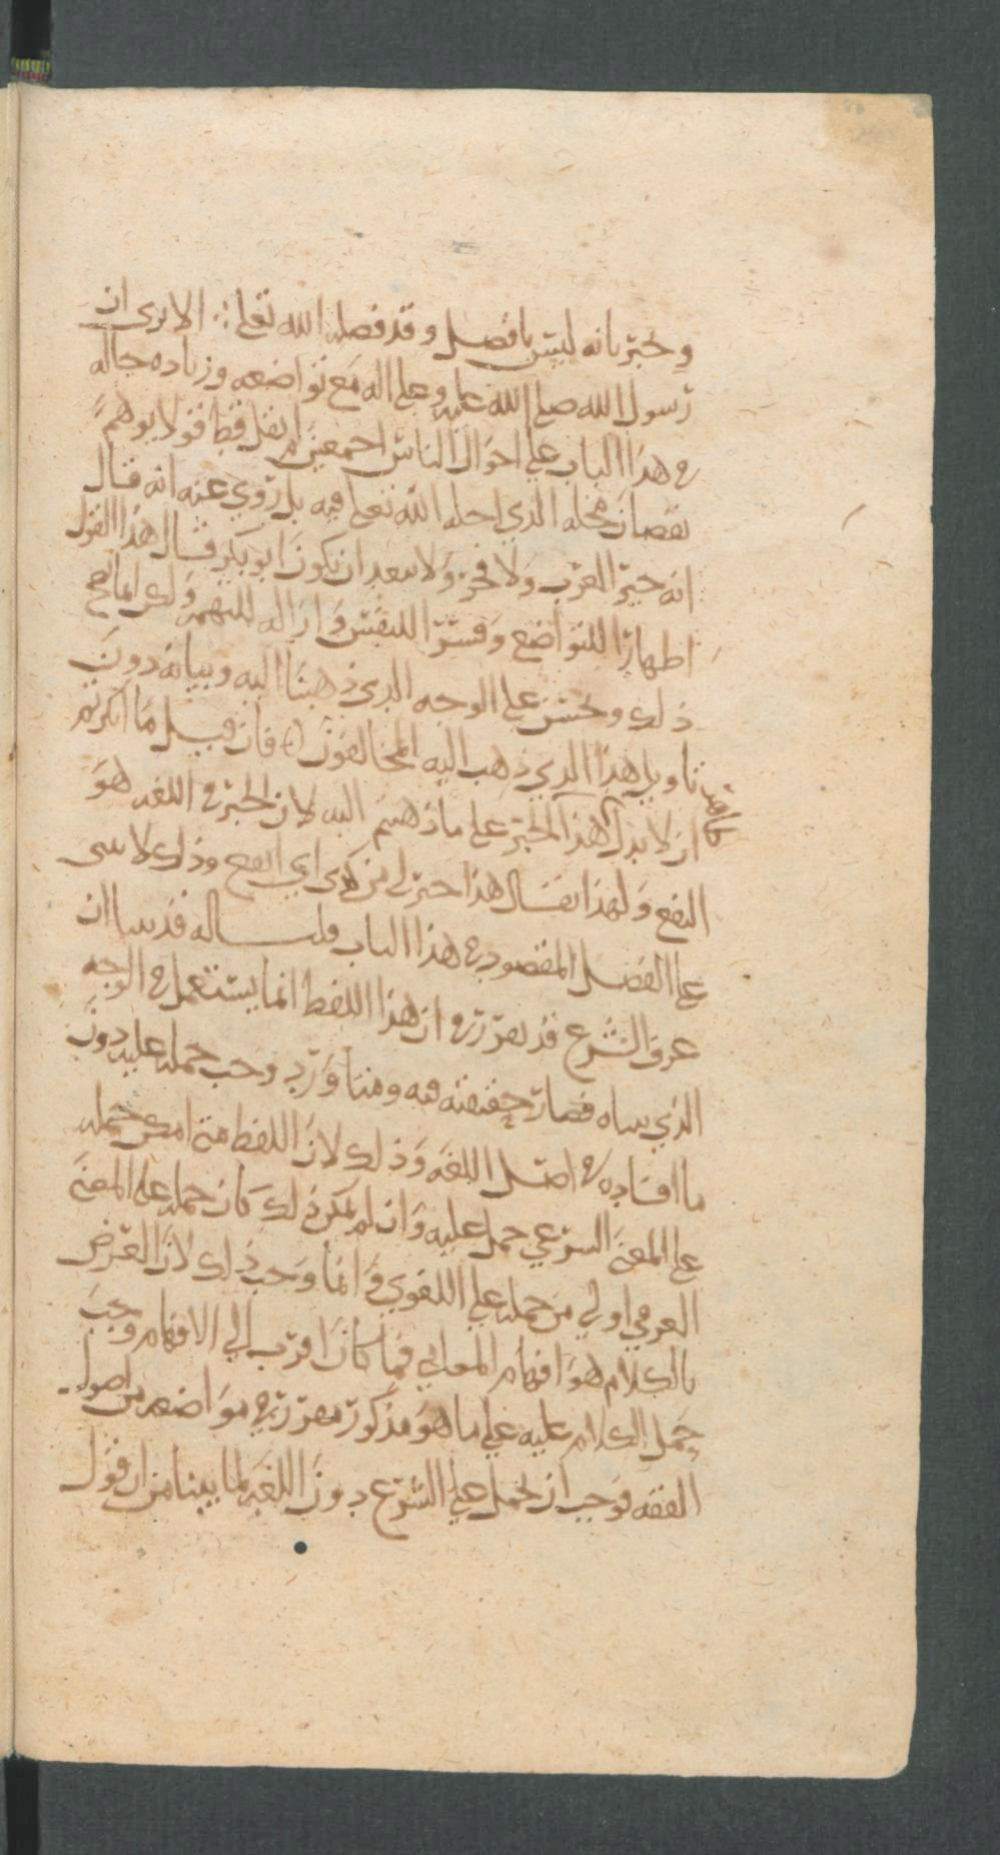 ويخبر بانه ليس بافضل وقد فضله الله تعلى ∴ الا ترى ان
رسول الله صلى الله عليه وعلى اله مع تواضعه وزياده حاله
في هذا الباب على احوال الناس اجمعين لم يقل قط قولا يوهم
نقصان محله الذي احله الله تعلى فيه بل روي عنه انه قال
انه خير العرب ولا فخر ولا يبعد ان يكون ابو بكر قال هذا القول
اظهارا للتواضع وكسرا للنفس وازاله للتهمه ولكن انما يصح
ذلك ويحسن على الوجه الذي ذهبنا اليه وبيانه دون
تاويل هذا الذي ذهب اليه المخالفون فان قيل ما انكرتم
ان لا يدل هذا الخبر على ما ذهبتم اليه لان الخبر في اللغه هو
النفع ولهذا يقال هذا خير لي من كذى اي انفع وذلك لا ينبي
على الفضل المقصود في هذا الباب قلنا له قد بينا ان
عرف الشرع قد تقرر في ان هذا اللفظ انما يستعمل في الوجه
الذي بيناه فصار حقيقته فيه ومتا ورد وجب حمله عليه دون
ما افاده في اصل اللغه وذلك لان اللفظ متى امكن حمله
على المعنى الشرعي حمل عليه وان لم يمكن ذلك كان حمله على المعنى
العرفي اولى من حمله على اللغوي وانما وجب ذلك لان الغرض
بالكلام هو افهام المعاني فما كان اقرب الى الافهام وجب
حمل الكلام عليه على ما هو مذكور مقرر في مواضعه من اصول
الفقه فوجب ان يحمل على الشرع دون اللغه لما بينا من ان قول